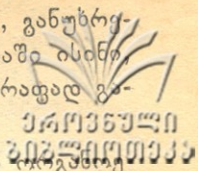 , განუხრე-
აში ისინი,
რაფად გა-
ეროვნული
ბიბლიოთეკა